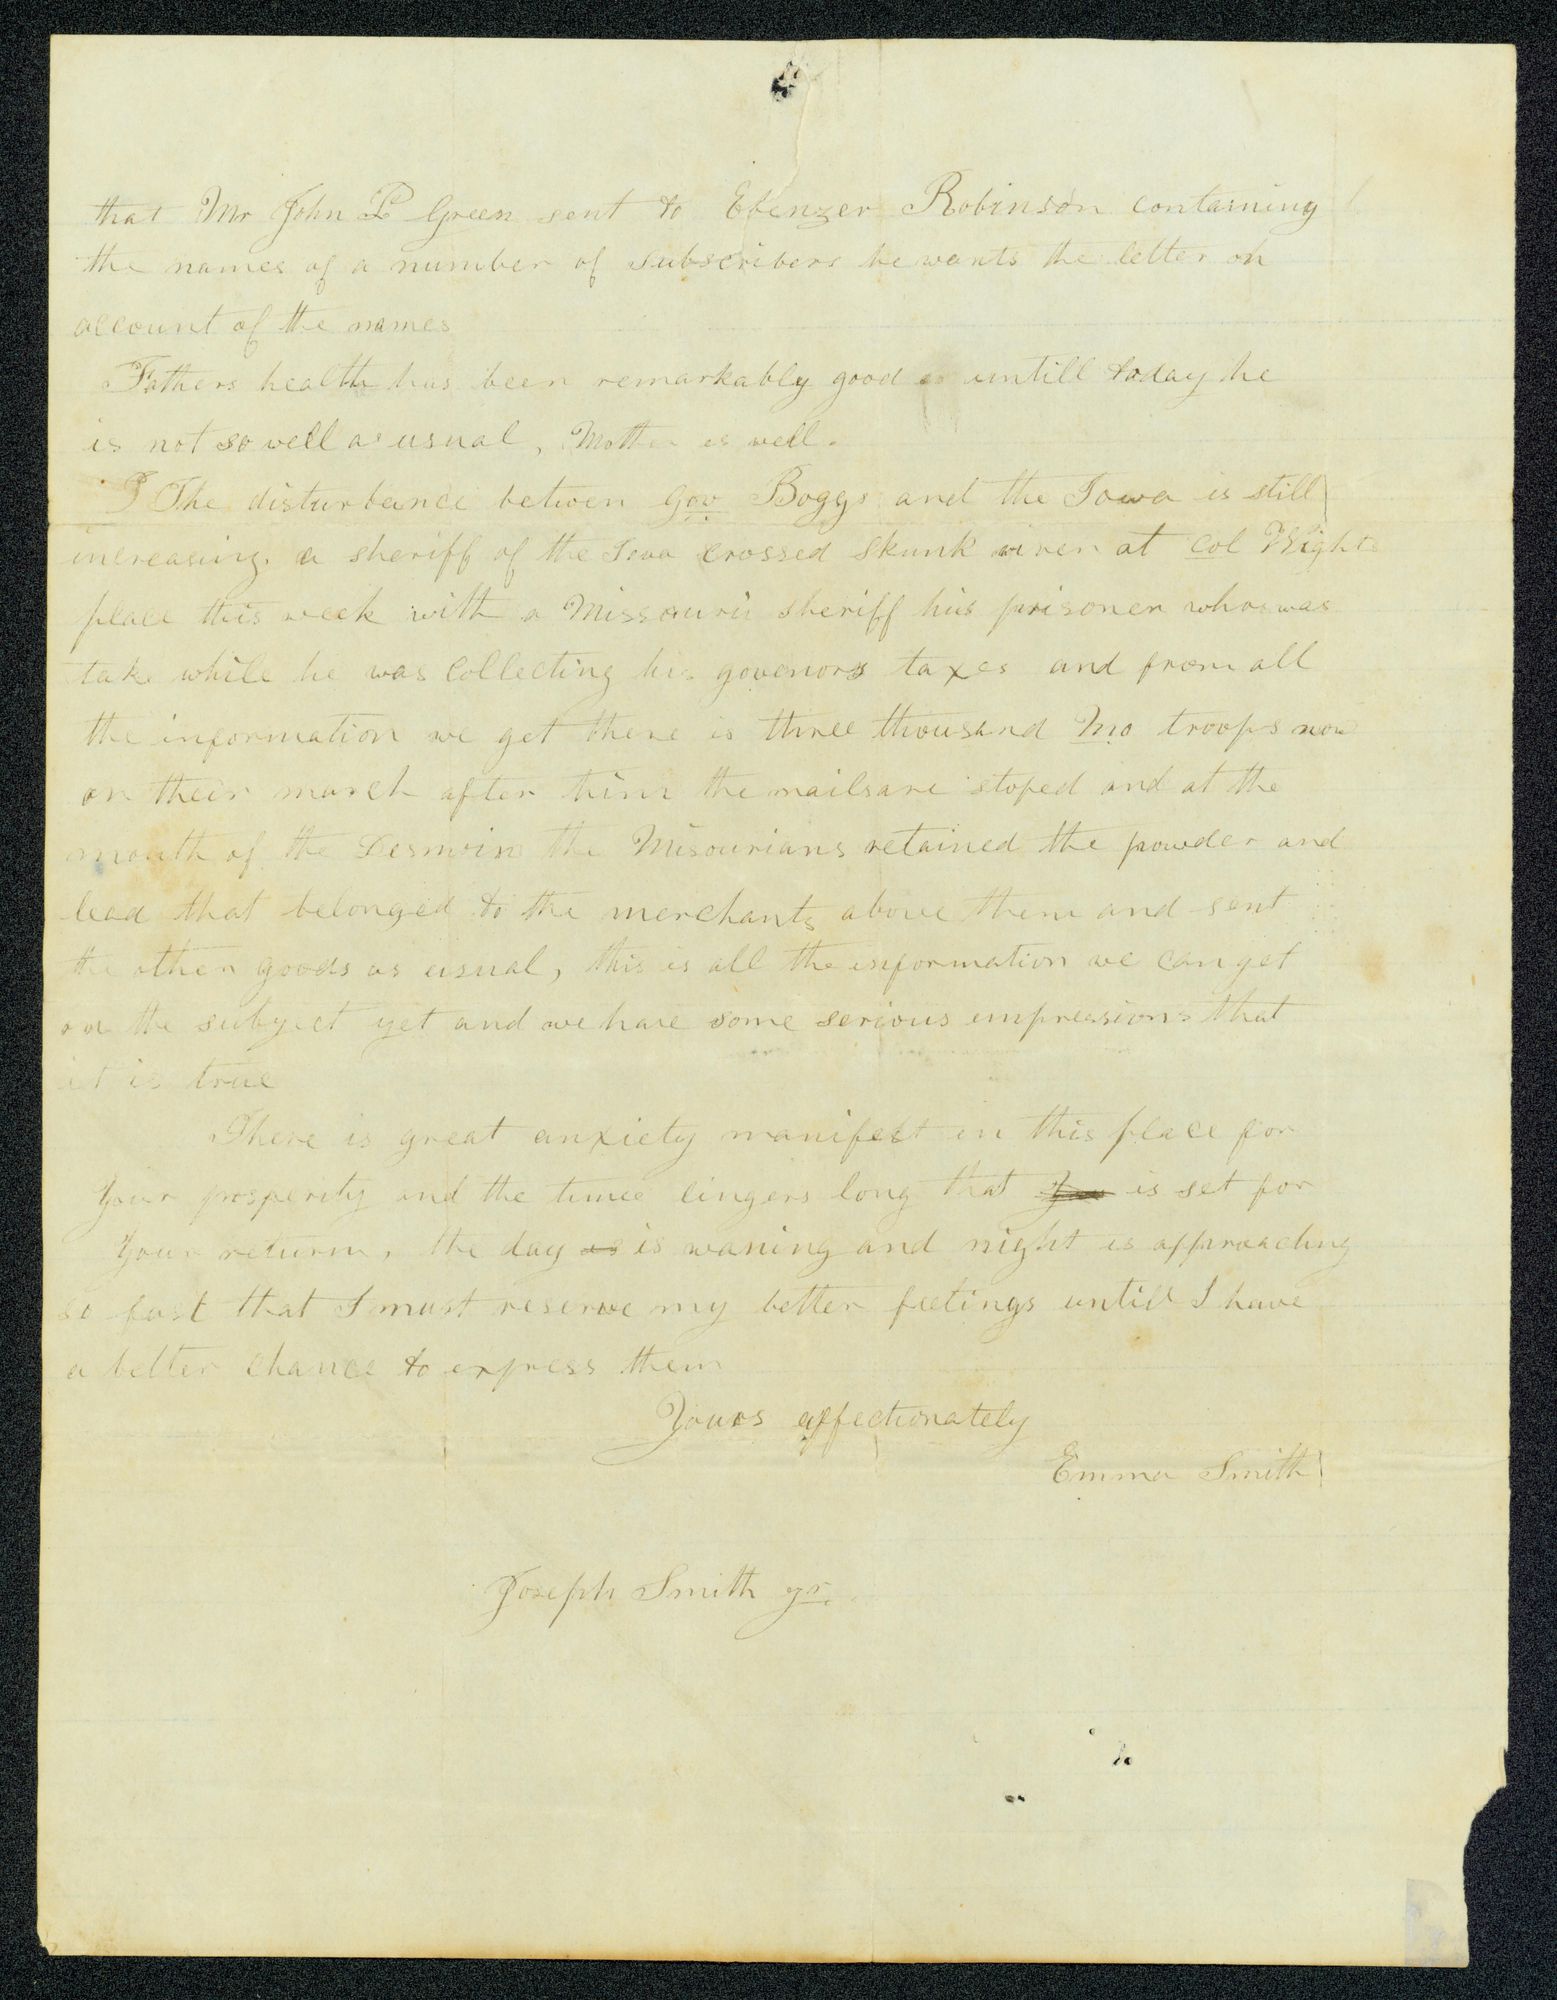 that Mr John P Green sent to Ebenzer Robinson containing
the names of a number of subscribers he wants the letter on
account of the names
Fathers health has been remarkably good untill today he
is not so well as usual, Mother is well.
The disturbance betwen Gov Boggs and the Iowa is still
increasing, a sheriff of the Iowa crossed skunk river at Col Wights
place this week with a Missourii sheriff his prisoner who was
take while he was collecting his govenors taxes and from all
the information we get there is three thousand Mo troops now
on their march after him the mails are stoped and at the
mouth of the Desmoin the Misourians retained the powder and
lead that belonged to the merchants above them and sent
the other goods as usual, this is all the information we can get
on the subject yet and we have some serious impressions that
it is true
There is great anxiety manifest in this place for
your prosperity and the time lingers long that you is set for
your return, the day is is waning and night is approaching
so fast that I must reserve my better feelings untill I have
a better chance to express them
Yours affectionately
Emma Smith
Joseph Smith jr.